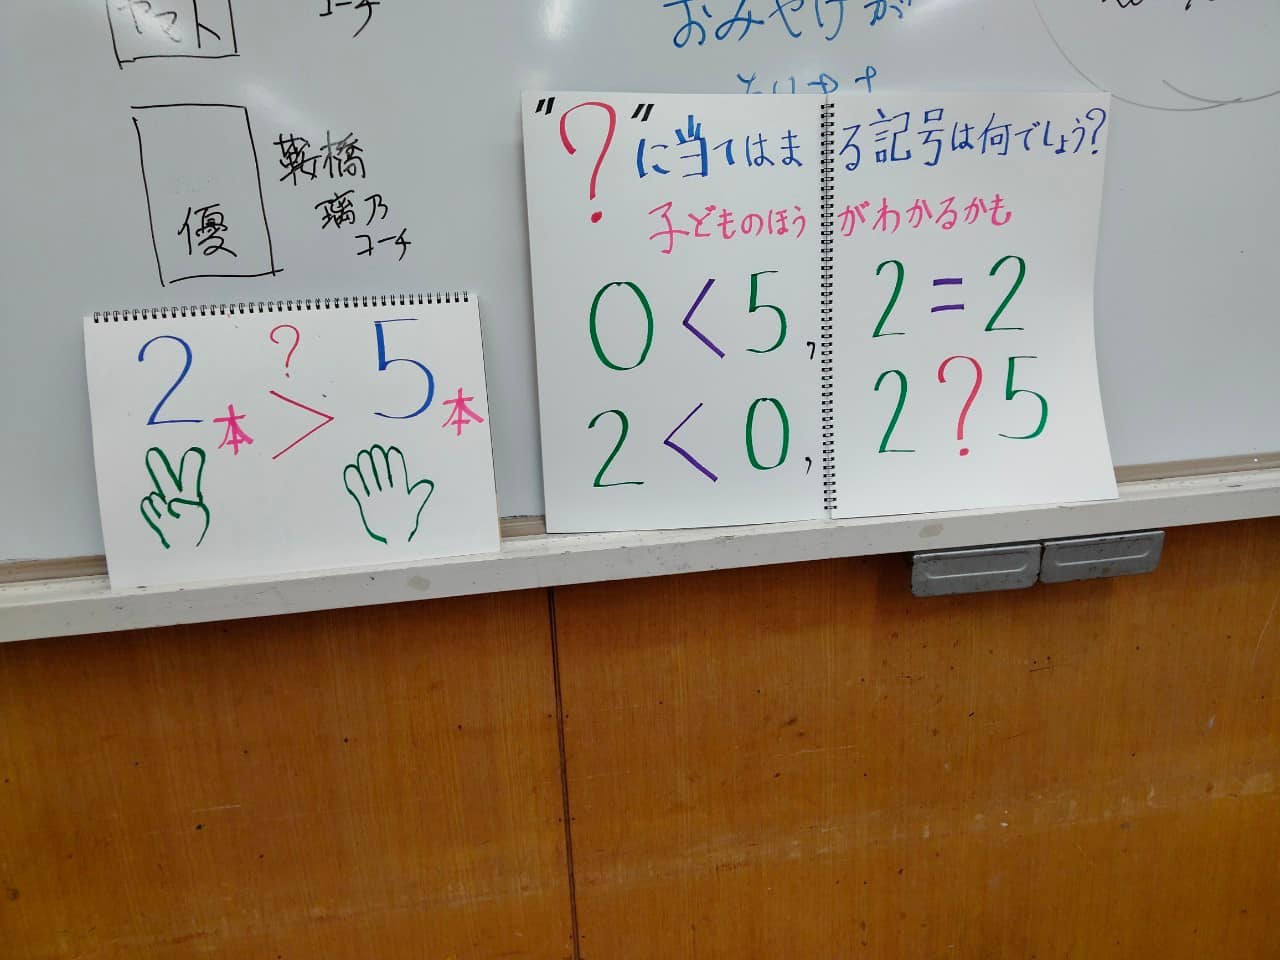 ヤマト
コーチ
おみやげが
優
鞍橋
璃乃
コーチ
"?"に当てはまる記号は何でしょう?
子どものほうがわかるかも
0<5, 2=2
2<0, 2?5
2本 ?> 5本